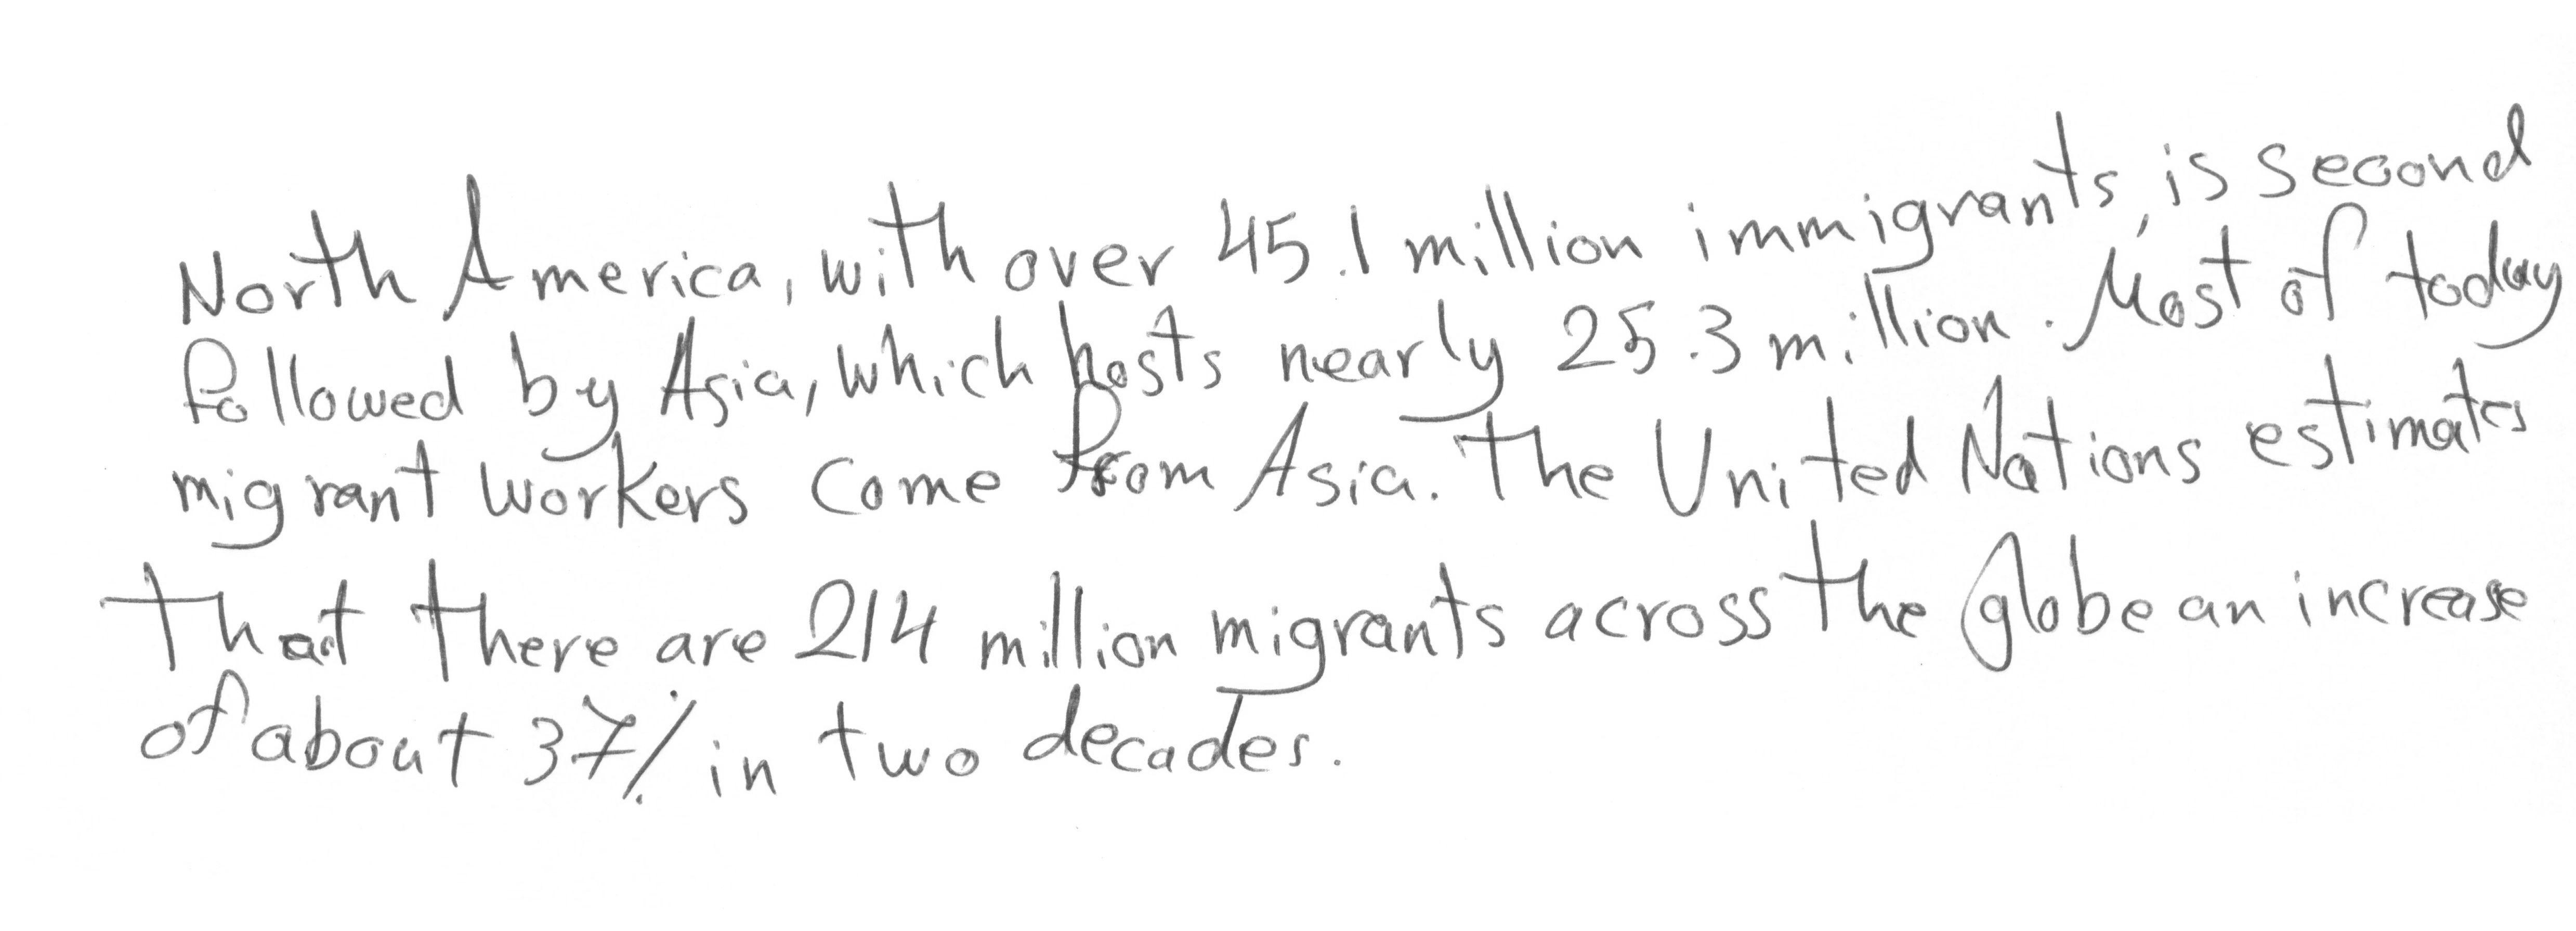 North America, with over 45.1 million immigrants, is second
followed by Asia, which hosts nearly 25.3 million. Most of today
migrant workers come from Asia. The United Nations estimates
that there are 214 million migrants across the globe an increase
of about 37% in two decades.